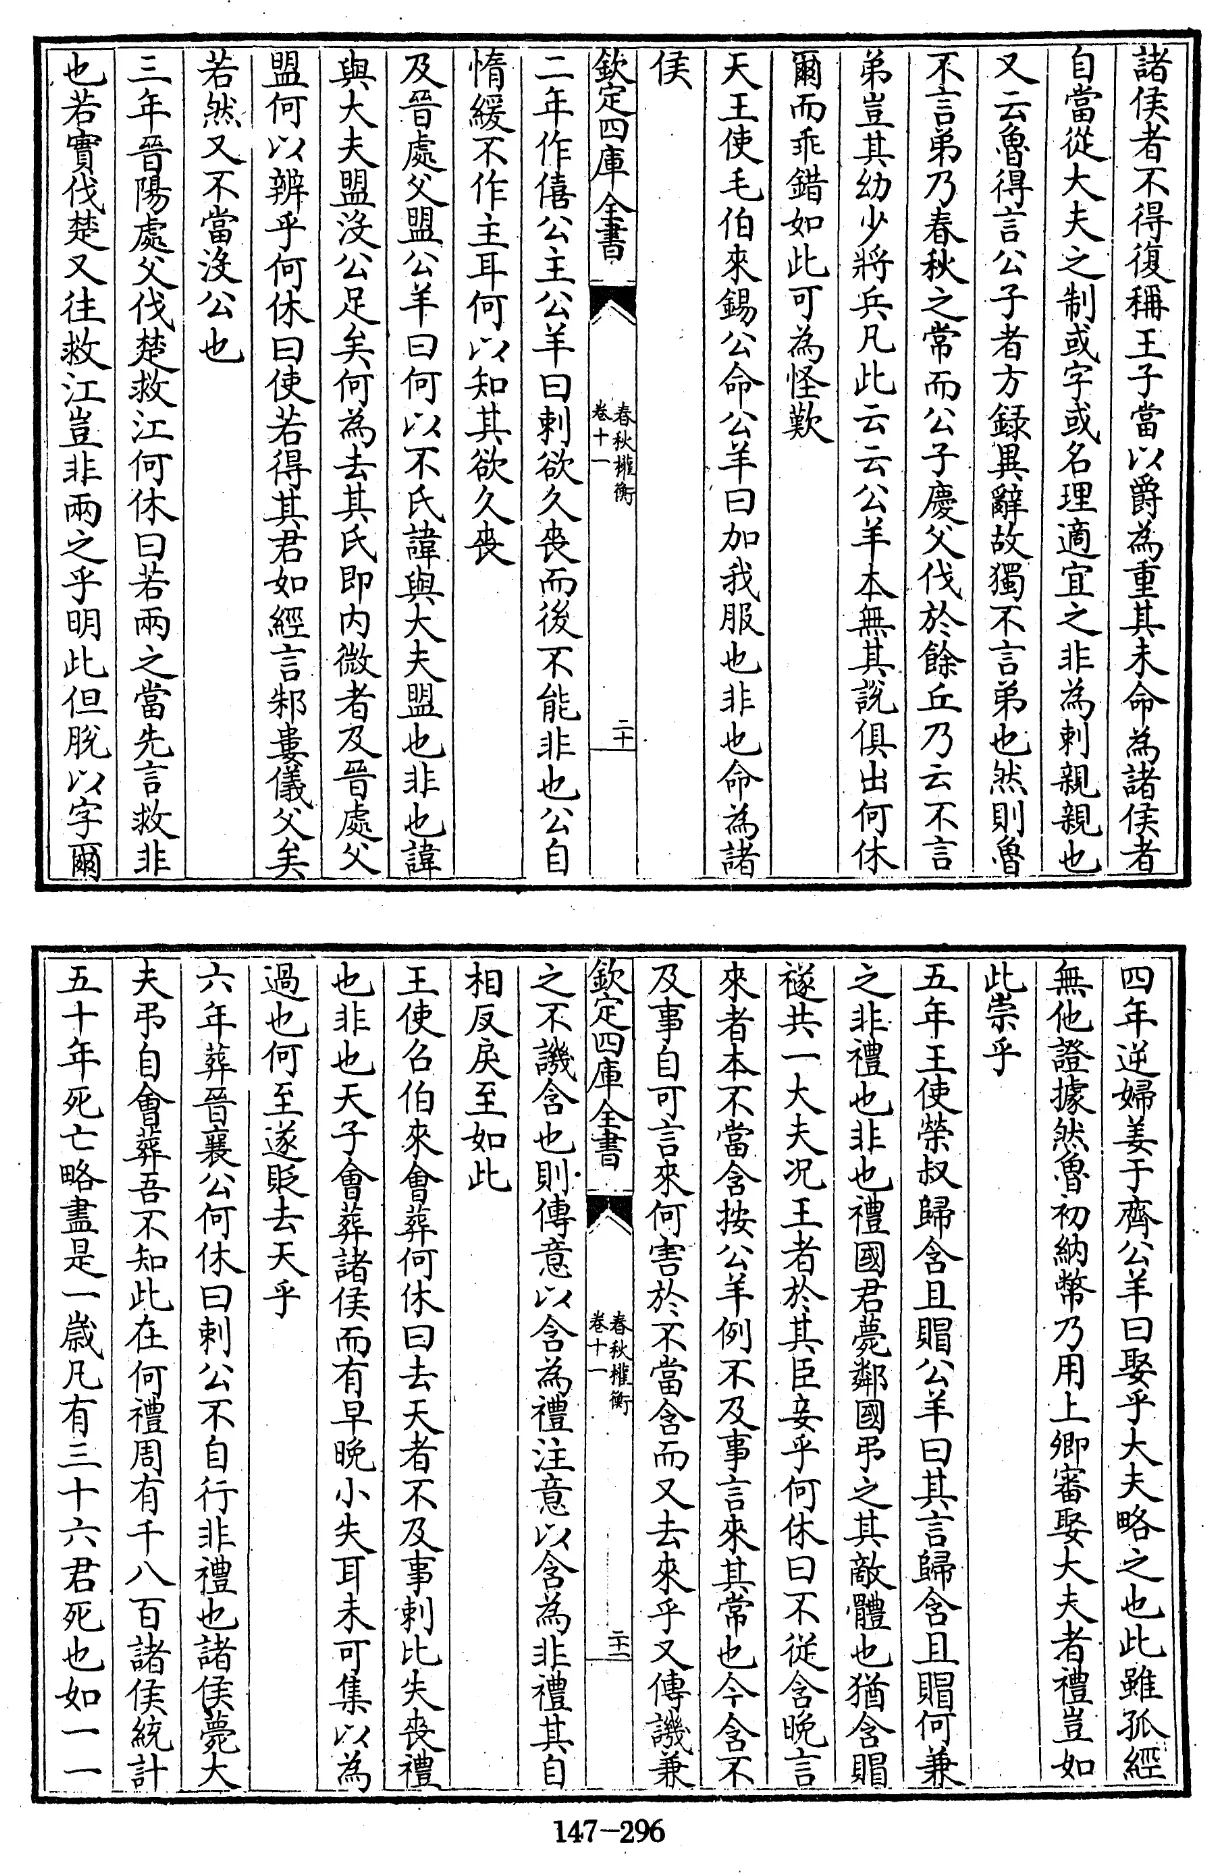 諸侯者不得復稱王子當以爵為重其未命為諸侯者
自當從大夫之制或字或名理適宜之非為刺親親也
又云魯得言公子者方録異辭故獨不言弟也然則魯
不言弟乃春秋之常而公子慶父伐於餘丘乃云不言
弟豈其幼少將兵凡此云云公羊本無其說俱出何休
爾而乖錯如此可為怪歎
天王使毛伯來錫公命公羊曰加我服也非也命為諸
侯
欽定四庫全書
春秋權衡
卷十一
二十
二年作僖公主公羊曰刺欲久喪而後不能非也公自
惰緩不作主耳何以知其欲久喪
及晉處父盟公羊曰何以不氏諱與大夫盟也非也諱
與大夫盟沒公足矣何為去其氏即内微者及晉處父
盟何以辨乎何休曰使若得其君如經言邾婁儀父矣
若然又不當沒公也
三年晉陽處父伐楚救江何休曰若兩之當先言救非
也若實伐楚又往救江豈非兩之乎明此但脫以字爾
四年逆婦姜于齊公羊曰娶乎大夫略之也此雖孤經
無他證據然魯初納幣乃用上卿審娶大夫者禮豈如
此崇乎
五年王使榮叔歸含且賵公羊曰其言歸含且賵何兼
之非禮也非也禮國君薨鄰國弔之其敵體也猶含賵
襚共一大夫况王者於其臣妾乎何休曰不從含晚言
來者本不當含按公羊例不及事言來其常也今含不
及事自可言來何害於不當含而又去來乎又傳譏兼
欽定四庫全書
春秋權衡
卷十一
二十一
之不譏含也則傳意以含為禮注意以含為非禮其自
相反戾至如此
王使召伯來會葬何休曰去天者不及事刺比失喪禮
也非也天子會葬諸侯而有早晚小失耳未可集以為
過也何至遂貶去天乎
六年葬晉襄公何休曰刺公不自行非禮也諸侯薨大
夫弔自會葬吾不知此在何禮周有千八百諸侯統計
五十年死亡略盡是一歲凡有三十六君死也如一一
147-296